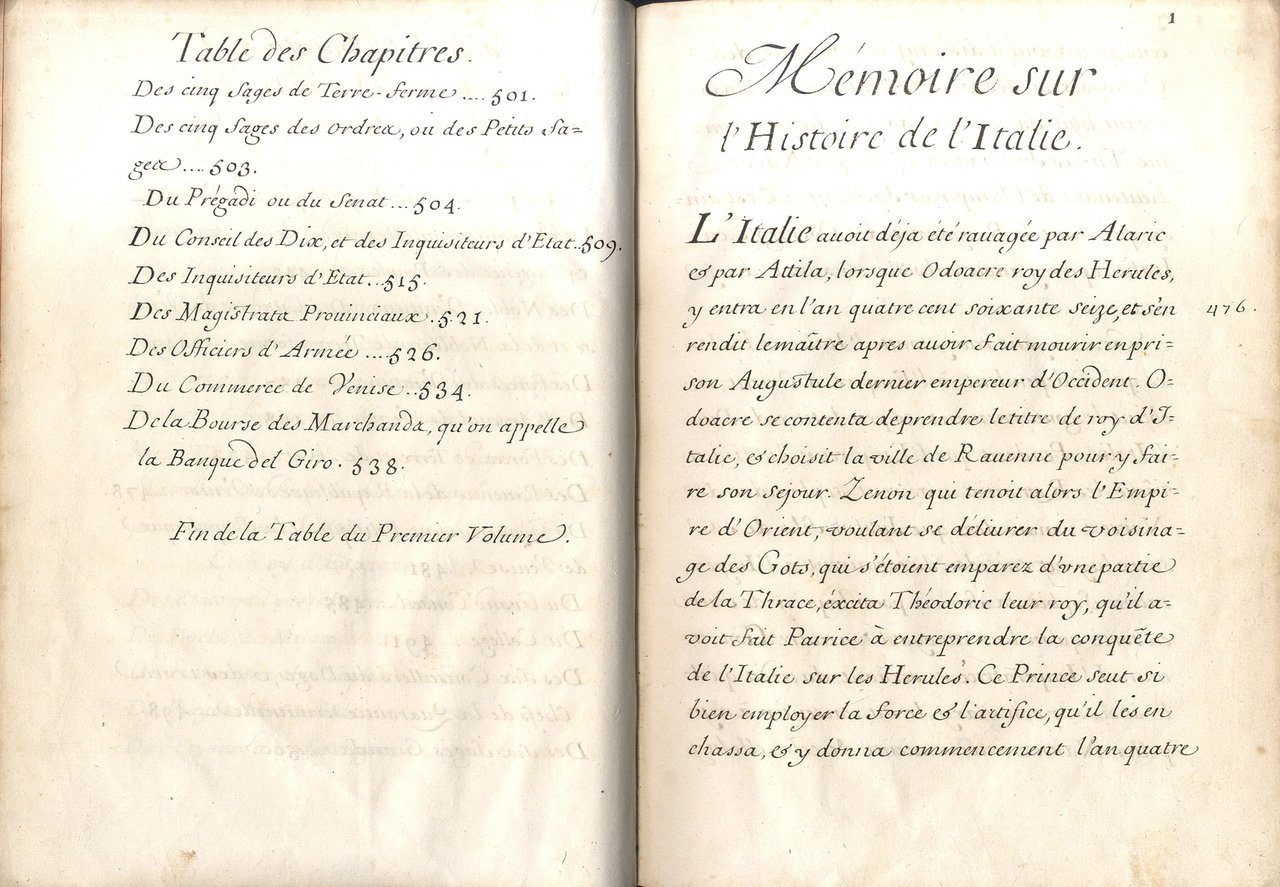 Table des Chapitres.
Des cinq Sages de Terre-ferme .... 501.
Des cinq Sages des ordres, ou des Petits Sa=
ges .... 503.
Du Prégadi ou du Senat ... 504.
Du Conseil des Dix, et des Inquisiteurs d'Etat .. 509.
Des Inquisiteurs d'Etat .. 515.
Des Magistrats Prouinciaux . 521.
Des Officiers d'Armée .... 526.
Du Commerce de Venise .. 534.
De la Bourse des Marchands, qu'on appelle
la Banque del Giro . 538.
Fin de la Table du Premier Volume.
1
Mémoire sur
l'Histoire de l'Italie.
L'Italie auoit déja été rauagée par Alaric
& par Attila, lorsque Odoacre roy des Herules,
y entra en l'an quatre cent soixante seize, et s'en
476.
rendit le maître apres auoir fait mourir en pri=
son Augustule dernier empereur d'Occident. O=
doacre se contenta de prendre le titre de roy d'I=
talie, & choisit la ville de Rauenne pour y fai=
re son sejour. Zenon qui tenoit alors l'Empi=
re d'Orient, voulant se déliurer du voisina=
ge des Gots, qui s'étoient emparez d'vne partie
de la Thrace, éxcita Théodoric leur roy, qu'il a=
voit fait Patrice à entreprendre la conquête
de l'Italie sur les Herules. Ce Prince seut si
bien employer la force & l'artifice, qu'il les en
chassa, & y donna commencement l'an quatre